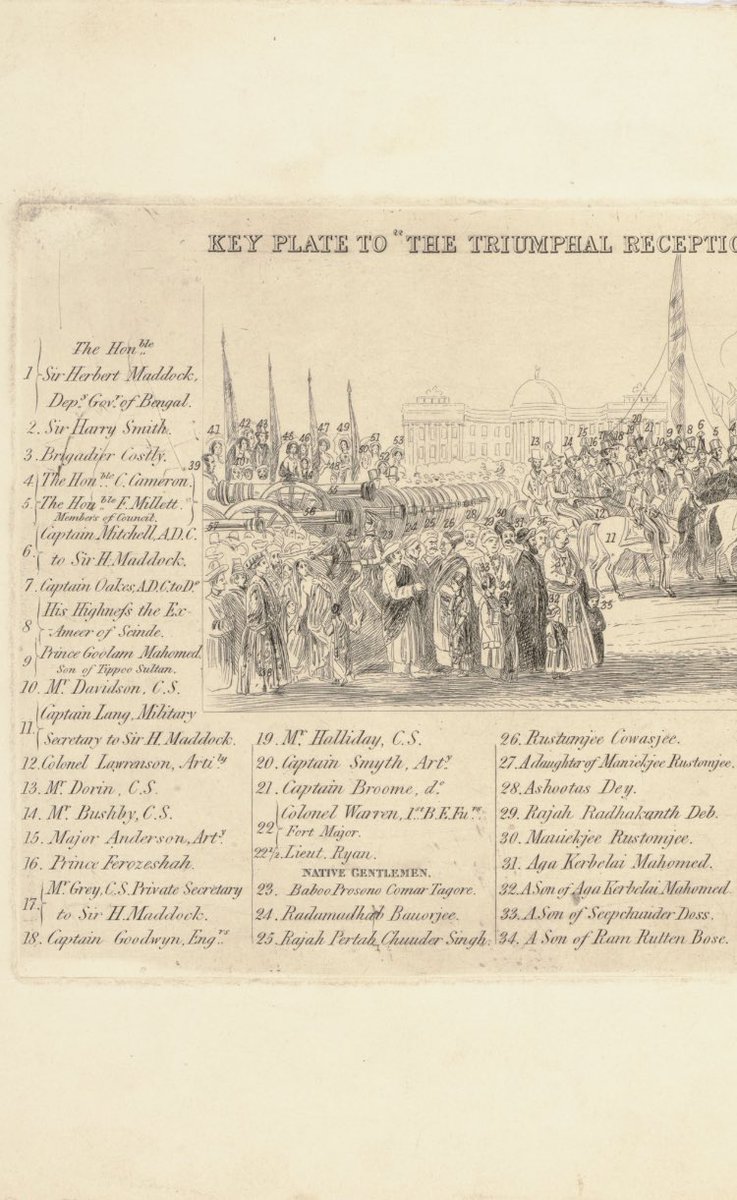 KEY PLATE TO "THE TRIUMPHAL RECEPTIO
The Honble
1 Sir Herbert Maddock,
Depy Govr of Bengal.
2. Sir Harry Smith.
3. Brigadier Costly.
4 The Honble C. Cameron.
5. The Honble F. Millett.
Members of Council.
6. Captain Mitchell, A.D.C.
to Sir H. Maddock.
7. Captain Oakes, A.D.C. to Do
8 His Highness the Ex-
Ameer of Scinde.
9 Prince Goolam Mahomed.
Son of Tippoo Sultan.
10. Mr Davidson, C.S.
11. Captain Lang, Military
Secretary to Sir H. Maddock.
12. Colonel Lawrenson, Artilly
13. Mr Dorin, C.S.
14. Mr Bushby, C.S.
15. Major Anderson, Arty
16. Prince Ferozeshah.
17. Mr Grey, C.S. Private Secretary
to Sir H. Maddock.
18. Captain Goodwyn, Engrs
19. Mr Halliday, C.S.
20. Captain Smyth, Arty
21. Captain Broome, do
22 Colonel Warren, 1st B.E. Furs
Fort Major.
22½. Lieut. Ryan.
NATIVE GENTLEMEN.
23. Baboo Prosono Comar Tagore.
24. Radamadhab Bauorjee.
25. Rajah Pertah Chuuder Singh.
26. Rustumjee Cowasjee.
27. A daughter of Maniekjee Rustomjee.
28. Ashootas Dey.
29. Rajah Radhakanth Deb.
30. Mauiekjee Rustomjee.
31. Aga Kerbelai Mahomed.
32. A Son of Aga Kerbelai Mahomed.
33. A Son of Seepchuuder Doss.
34. A Son of Ram Rutten Bose.